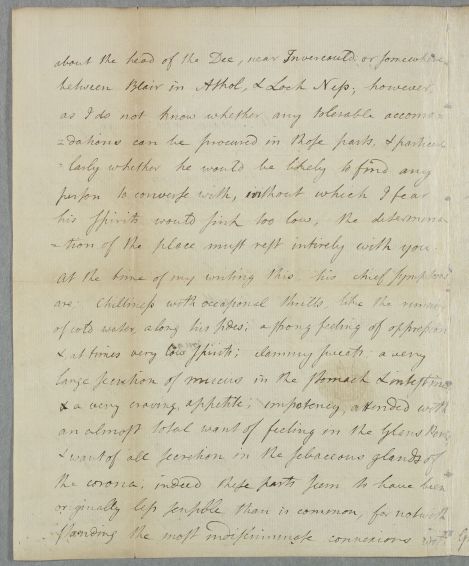 about the head of the Dee, near Invercauld or somewhere
between Blair in Athol, & Loch Ness; however,
as I do not know whether any tolerable accomo-
=dations can be procured in those parts, & particu
=larly whether he would be likely to find any
person to converse with, without which I fear
his Spirits would sink too low, the determina
=tion of the place must rest intirely with you.
At the time of my writing this his chief symptoms
are: Chilliness with occasional thrills, like the
of cold water, along his sides; a strong feeling of oppression
& at times very low Spirits; clammy sweats; a very
large secretion of mucus in the stomach & intestines
& a very craving appetite; impotency, attended with
an almost total want of feeling in the Glans Penis
& want of all secretion in the sebaceous glands of
the corona; indeed these parts seem to have been
originally less sensible than is common, for notwith
standing the most indiscriminate connexions